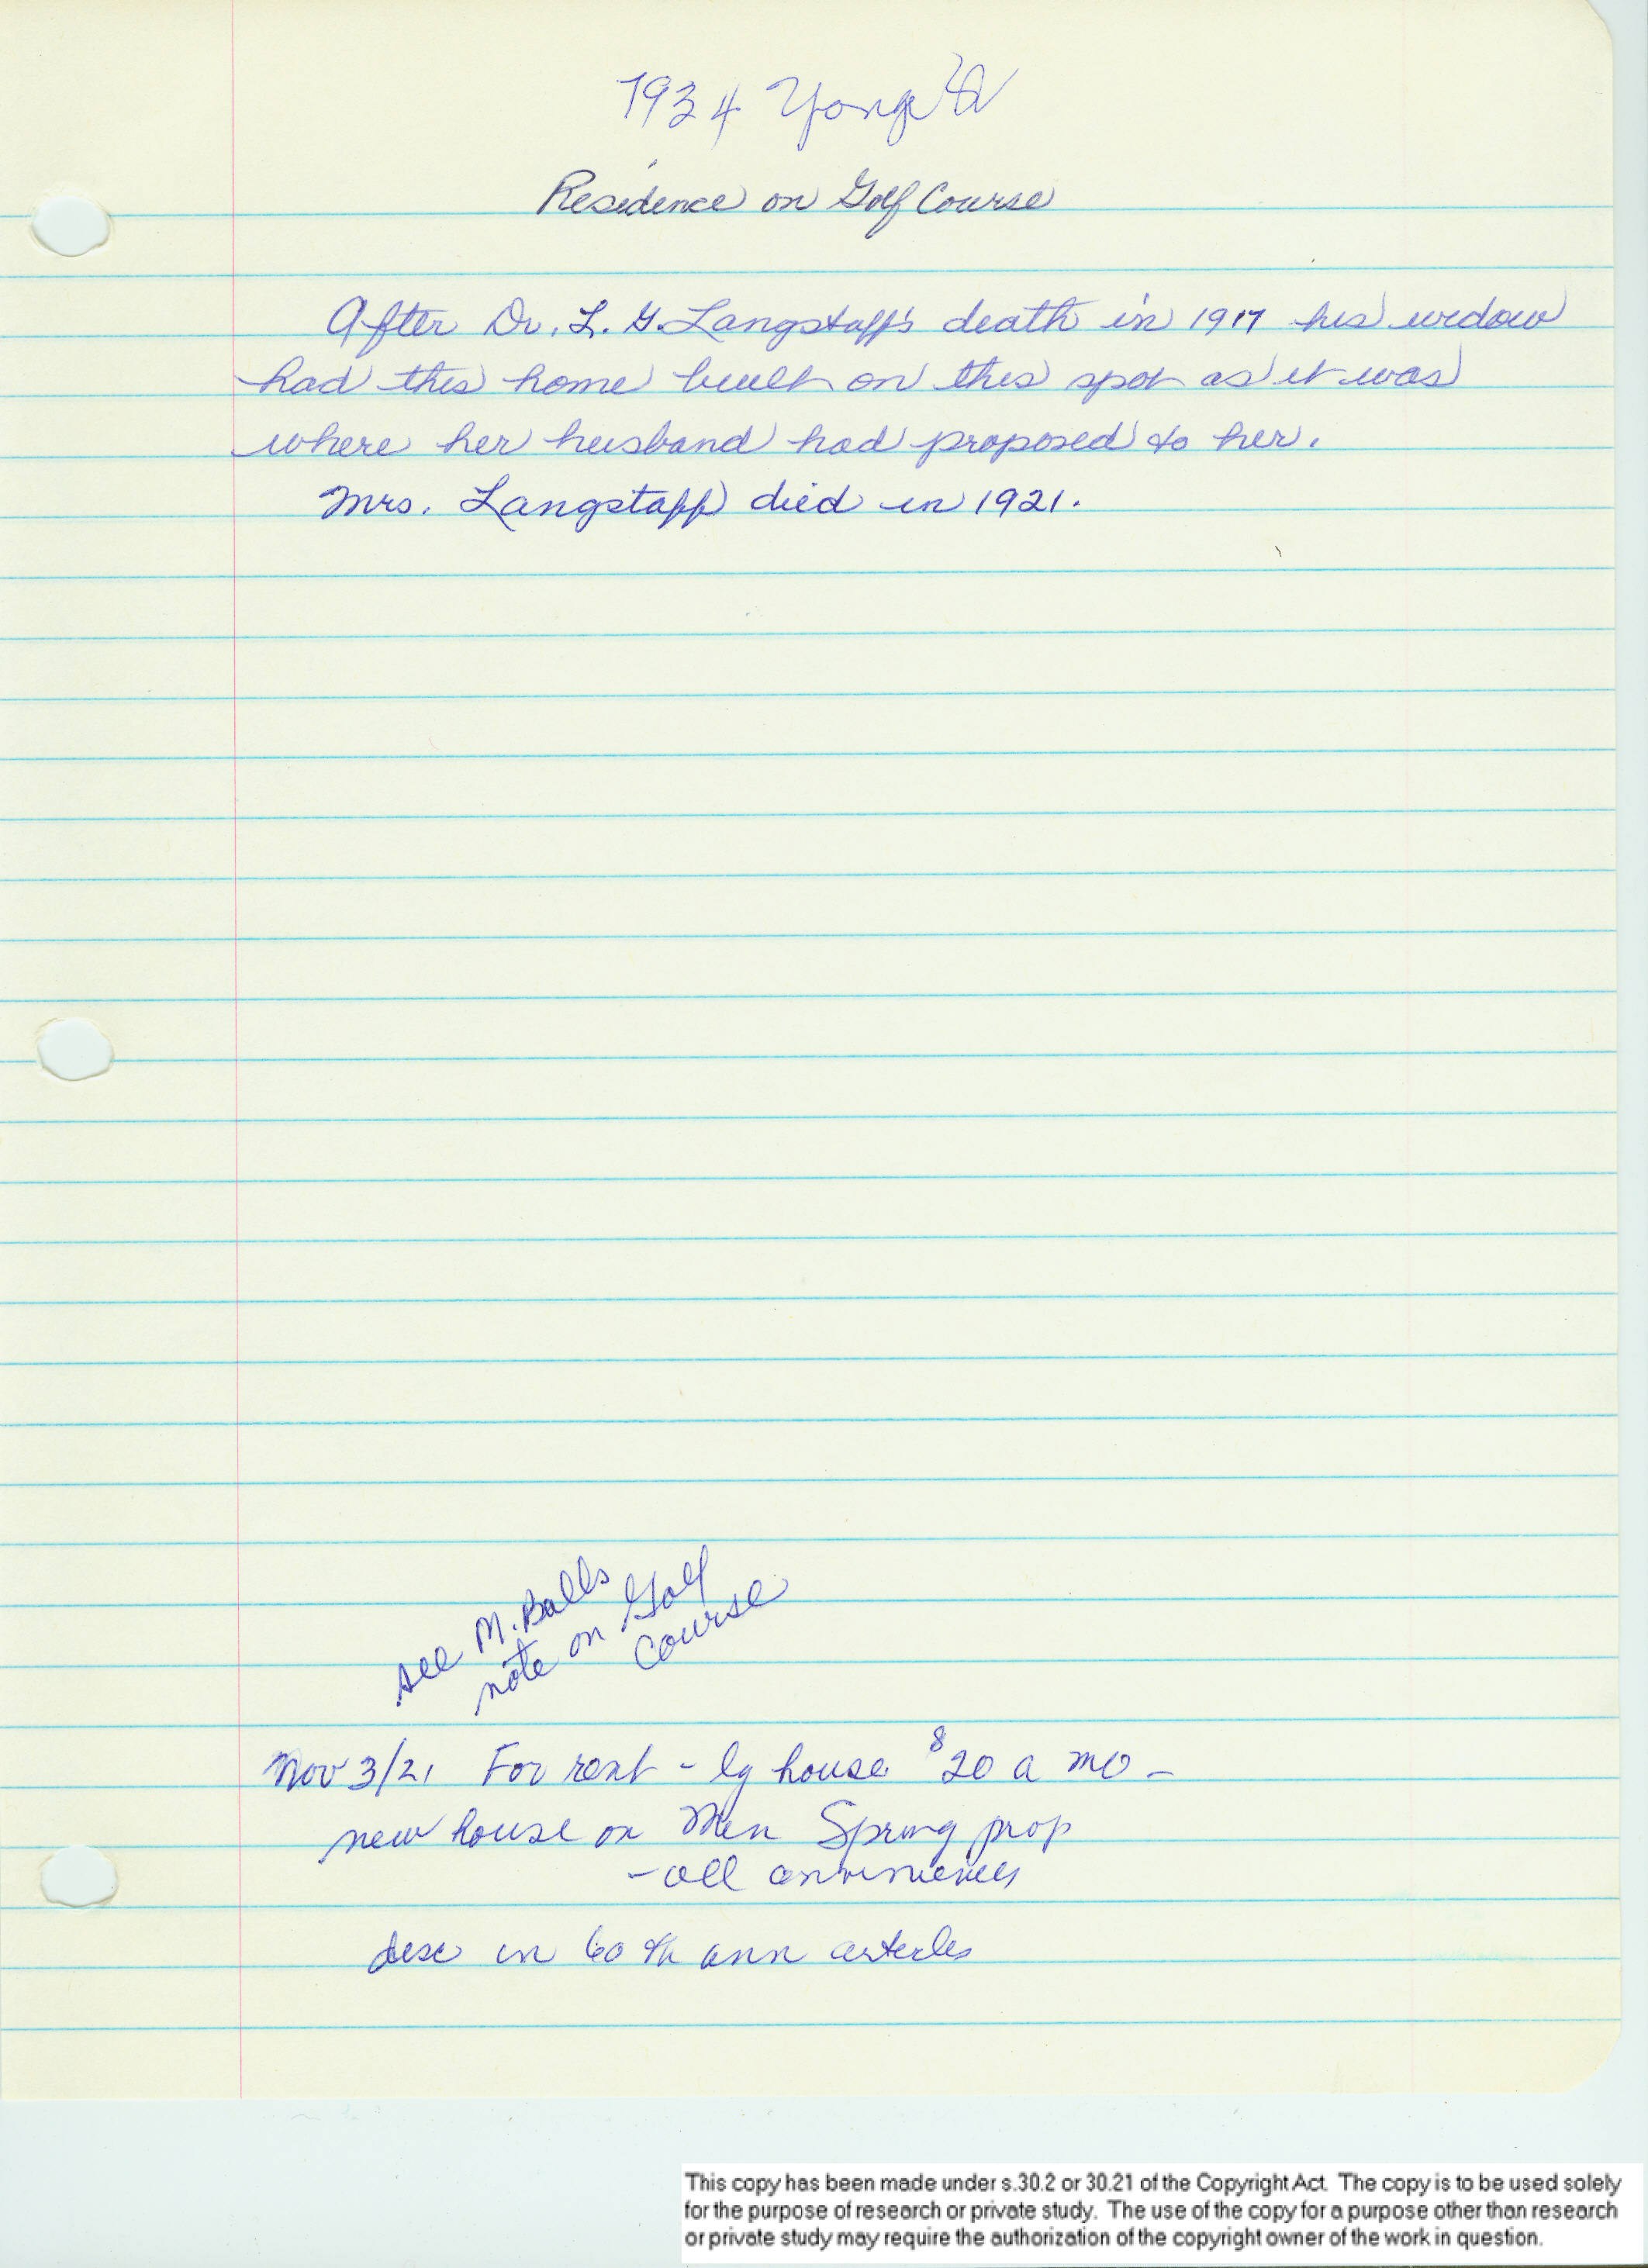 7934 Yonge St
Residence on Golf Course
After Dr. L. G. Langstaff's death in 1917 his widow
had this home built on this spot as it was
where her husband had proposed to her.
Mrs. Langstaff died in 1921.
see M. Balls
note on Golf
Course
Nov 3/21 For rent - lg house $20 a mo -
new house on Min Spring prop
- all conveniences
desc in 60th ann articles
This copy has been made under s.30.2 or 30.21 of the Copyright Act. The copy is to be used solely
for the purpose of research or private study. The use of the copy for a purpose other than research
or private study may require the authorization of the copyright owner of the work in question.